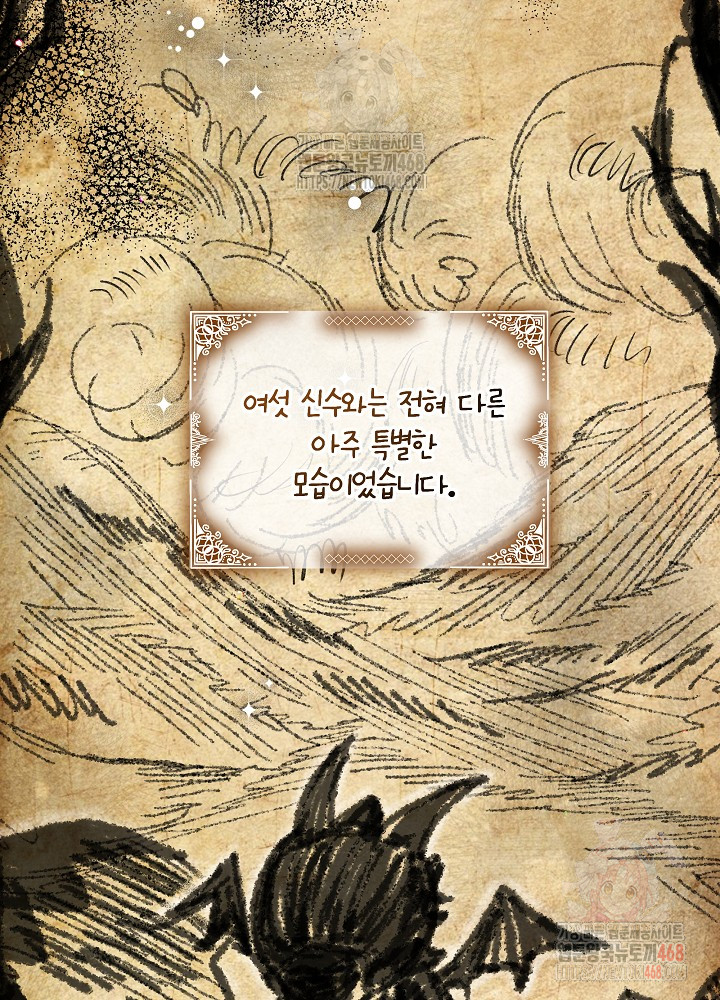 가장 빠른 웹툰제공사이트
웹툰왕국뉴토끼468
HTTPS://NEWTOKI468
여섯 신수와는 전혀 다른
아주 특별한
모습이었습니다.
가장 빠른 웹툰제공사이트
웹툰왕국뉴토끼468
HTTPS://NEWTOKI468